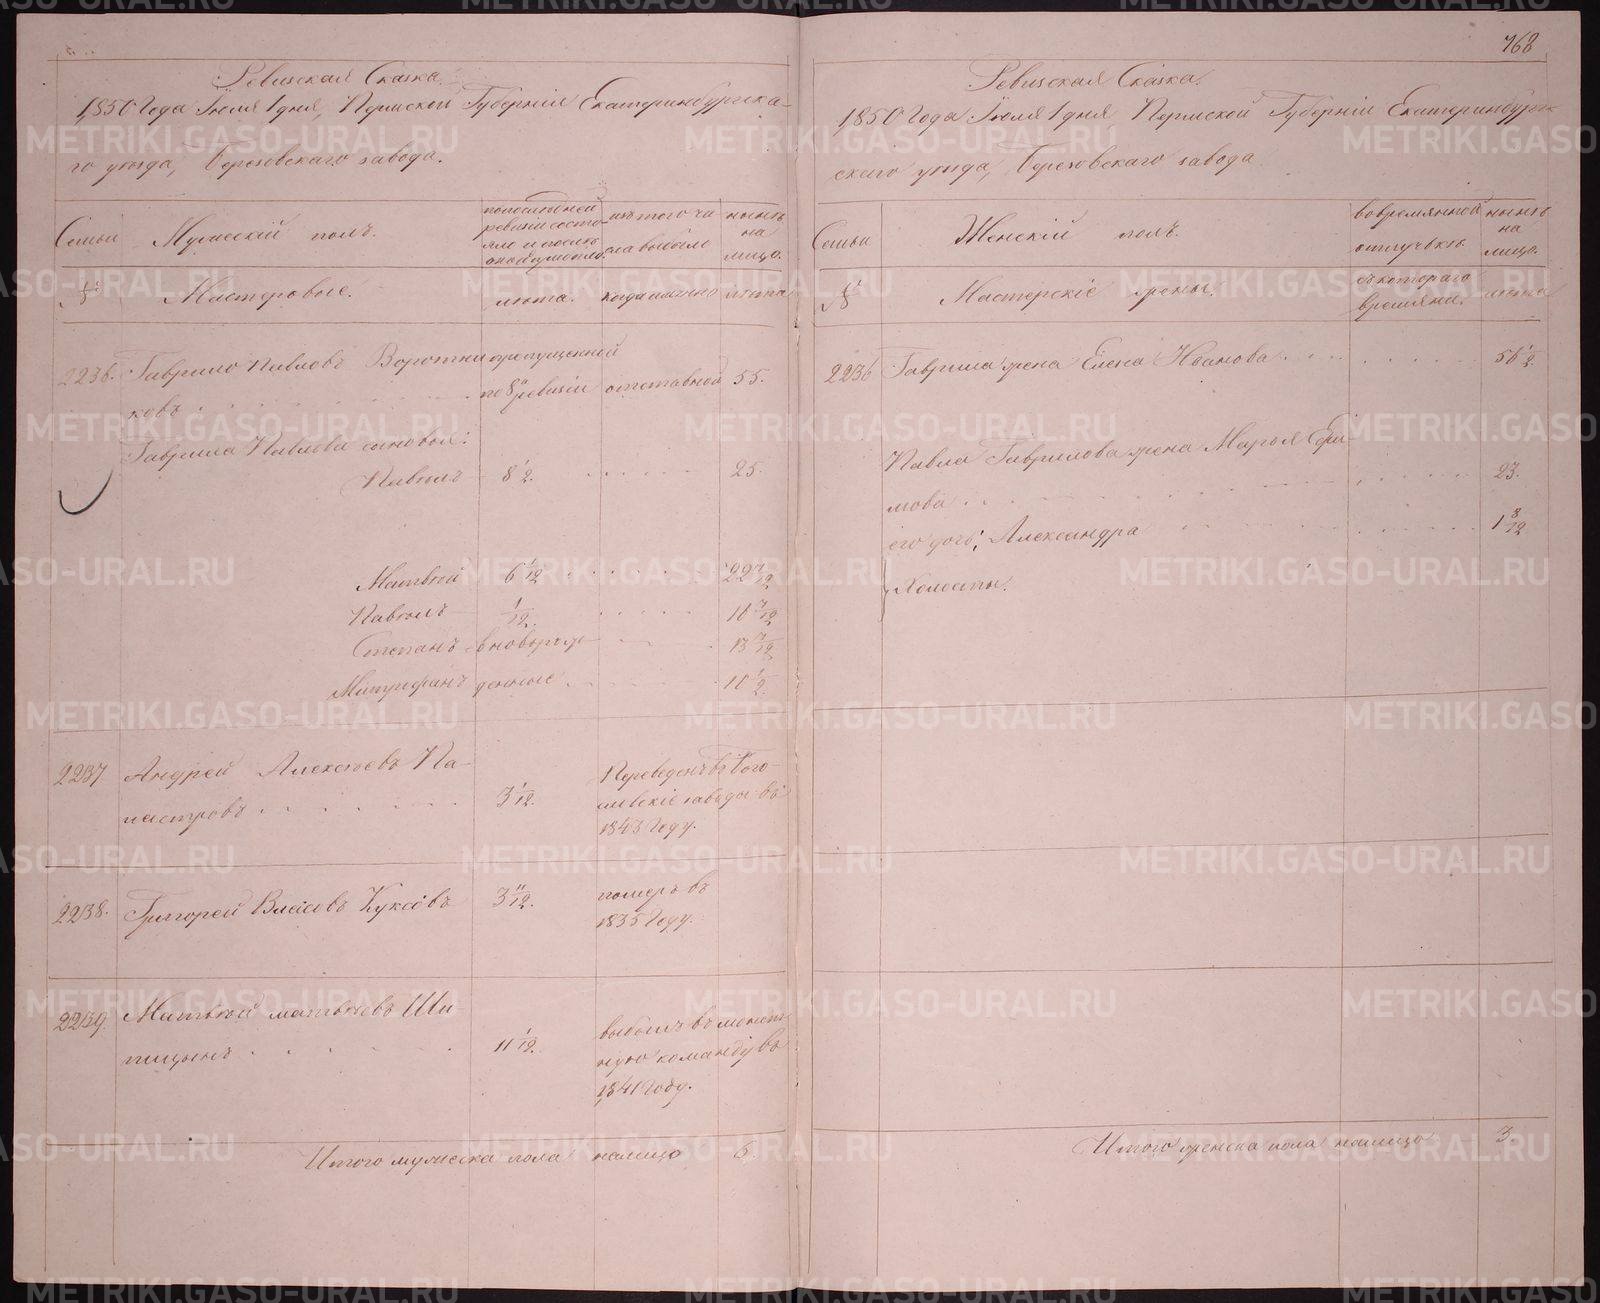 768
Ревизская Сказка.
1850 Года Іюля 1 дня, Пермской Губерніи Екатеринбургска-
го уѣзда, Березовскаго завода.
Семьи
Мужескій полъ.
по последней
ревизіи состо-
яло и после
изъ того чи
сла выбыло
нынѣ
на
лицо.
№
Мастеровые.
лѣта.
когда именно
лѣта
2236.
Гаврило Павловъ Воротни
ковъ
пропущенной
по 8й ревизіи отставной 55.
Гаврила Павлова сыновья:
Павелъ 8 1/2. 25.
Матвей 6 1/12 22 7/12
Павелъ 1/12. 16 7/12
Степанъ вноворож 13 7/12
Митрофанъ денные 11 1/2.
2237
Андрей Алексѣевъ Па-
настровъ
3 1/12.
Переведенъ въ Бого-
словскіе заводы въ
1843 Году.
2238.
Григорей Власовъ Куксовъ 3 11/12.
померъ въ
1835 Году.
2239.
Матвей Матвѣевъ Ши
пицынъ
11 1/12.
выбылъ въ монет
ную команду въ
1841 Году.
Итого мужеска пола налицо 6.
Ревизская Сказка.
1850 Года Іюля 1 дня, Пермской Губерніи Екатеринбург-
скаго уѣзда, Березовскаго завода
Семьи
Женскій полъ.
во временной
отлучкѣ.
нынѣ
на
лицо.
№
Мастерскіе жены.
съ котораго
времяни.
лѣта
2236
Гаврила жена Елена Иванова 56 1/2.
Павла Гаврилова жена Марья Ефи-
мова 23.
его дочь: Александра 1 8/12
Холосты.
Итого женска пола налицо 3
METRIKI.GASO-URAL.RU